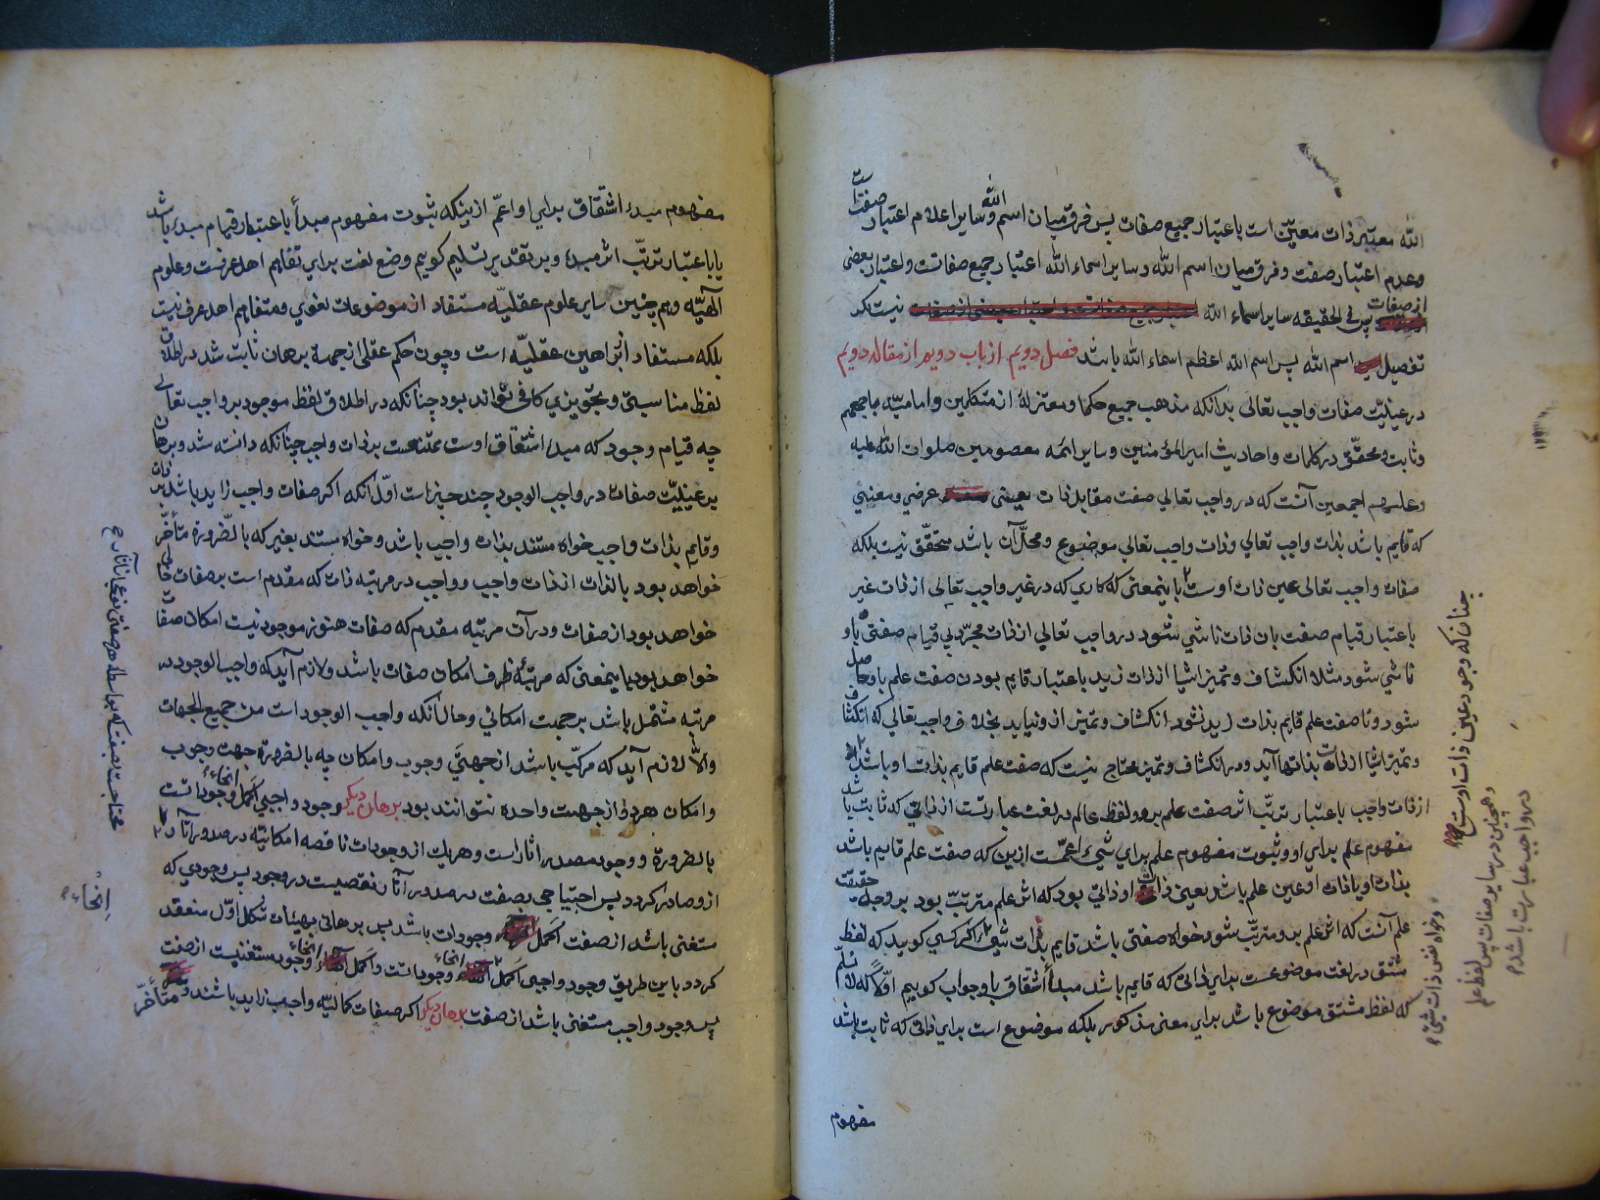 الله معیّن ذات معیّن است باعتبار جمیع صفات پس فرق میان اسم الله و سایر اعلام اعتبار صفت است
وعدم اعتبار صفت و فرق میان اسم الله و سایر اسماء الله اعتبار جمیع صفاتست و اعتبار بعضی
از صفات و پس فی الحقیقه سایر اسماء الله نیست مکر
تفصیل اسم الله پس اسم الله اعظم اسماء الله باشد فصل دویم از باب دویم از مقاله دویم
در عینیّت صفات واجب تعالی بدانکه مذهب جمیع حکما و معتزلهٔ از متکلمین و امامیّه باجمعهم
و ثابت و محقّق در کلمات و احادیث امیرالمؤمنین و سایر ائمه معصومین صلوات الله علیه
وعلیهم اجمعین آنست که در واجب تعالی صفت مقابل ذات یعنی عرضی و معنیی
که قایم باشد بذات واجب تعالی و ذات واجب تعالی موضوع و محلّ آن باشد متحقّق نیست بلکه
صفات واجب تعالی عین ذات اوست باینمعنی که کاری که در غیر واجب تعالی از ذات غیر
باعتبار قیام صفت بان ذات ناشی شود در واجب تعالی از ذات مجرّد بی قیام صفتی باو
ناشی شود مثلا انکشاف و تمیز اشیا از ذات زید باعتبار قایم بودن صفت علم باو حاصل
شود و تا صفت علم قایم بذات زید نشود انکشاف و تمیز از و نیاید بخلاف واجب تعالی که انکشاف
و تمیز اشیا از ذات بذاتها آید و در انکشاف و تمیز محتاج نیست که صفت علم قایم بذات او باشد
از ذات واجب باعتبار ترتّب اثر صفت علم برو و لفظ عالم در لغت عبارتست از ذاتی که ثابت باشد
مفهوم علم برای او و ثبوت مفهوم علم برای شیء اعمّست ازین که صفت علم قایم باشد
بذات او یا ذات او عین علم باشد یعنی ذات او ذاتی بود که اثر علم مترتّب بود برو چه حقیقت
علم آنست که اثر علم برو مترتّب شود خواه صفتی باشد قایم بذات اکر کسی کوید که لفظ
مشتق در لغت موضوعست برای ذاتی که قایم باشد مبدأ اشتقاق باو جواب کوییم اوّلا که لا نسلّم
که لفظ مشتق موضوع باشد برای معنی مذکور بلکه موضوع است برای ذاتی که ثابت باشد
مفهوم
چنان که وجود عین ذات اوست
و همچنین در سایر صفات پس لفظ علم
در واجب عبارت باشد
و خواه نفس ذات شیء
مفهوم مبدء اشتقاق برای او اعمّ ازینکه ثبوت مفهوم مبدأ باعتبار قیام مبدء باشد
یا باعتبار ترتّب اثر مبدء و بر تقدیر تسلیم کوییم وضع لغت برای تفاهم اهل عرفست و علوم
آلهیّه و هم چنین سایر علوم عقلیّه مستفاد از موضوعات لغوی و متفاهم اهل عرف نیست
بلکه مستفاد از براهین عقلیّه است و چون حکم عقلی از جهة برهان ثابت شد در اطلاق
لفظ مناسبتی و تجویزی کافی تواند بود چنانکه در اطلاق لفظ موجود بر واجب تعالی
چه قیام وجود که مبدء اشتقاق اوست ممتنعست بر ذات واجب چنانکه دانسته شد و برهان
بر عینیّت صفات در واجب الوجود چند چیز است اوّل آنکه اکر صفات واجب زاید باشد بر ذات
و قایم بذات واجب خواه مستند بذات واجب باشد و خواه مستند بغیر که بالضّرورة متأخّر
خواهد بود بالذات از ذات واجب و واجب در مرتبه ذات که مقدم است بر صفات
خواهد بود از صفات و در آن مرتبه مقدم که صفات هنوز موجود نیست امکان صفات
خواهد بود باینمعنی که مرتبهٔ ظرف امکان صفات باشد و لازم آید که واجب الوجود در
مرتبه مشتمل باشد بر جهت امکانی و حال آنکه واجب الوجود است من جمیع الجهات
و الّا لازم آید که مرکّب باشد از جهتَی وجوب و امکان چه بالضرورة جهت وجوب
و امکان هر دو از جهت واحده نتوانند بود برهان دیکر وجود واجبی اکمل انحاء وجوداتست
بالضرورة و وجود مصدر اثار است و هریک از وجودات ناقصه امکانیّه در صدور آثار
از و صادر کردد پس احتیاج بصفت در صدور آثار نقصیست در وجود پس وجودی که
مستغنی باشد از صفت اکمل وجودات باشد پس برهانی بهیئات شکل اوّل منعقد
کردد باین طریق وجود واجبی اکمل انحاء وجوداتست و اکمل انحاء وجود مستغنیست از صفت
پس وجود واجب مستغنی باشد از صفت برهان دیکر اکر صفات کمالیّه واجب زاید باشند و متأخّر
محتاجست بصفت که بواسطهٔ هر صفتی نوعی از آثار
انحاء